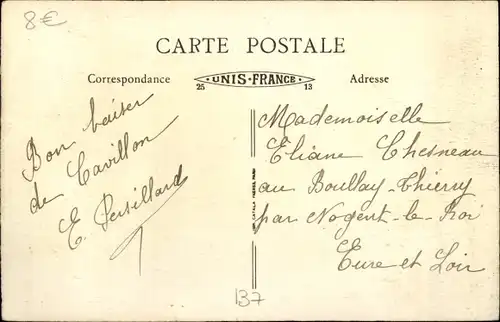 8€
CARTE POSTALE
Correspondance
UNIS-FRANCE
25
13
Adresse
Bon baiser
de Cavillon
E. Persillard
Mademoiselle
Eliane Chesneau
au Boullay-Thierry
par Nogent-le-Roi
Eure et Loir
137